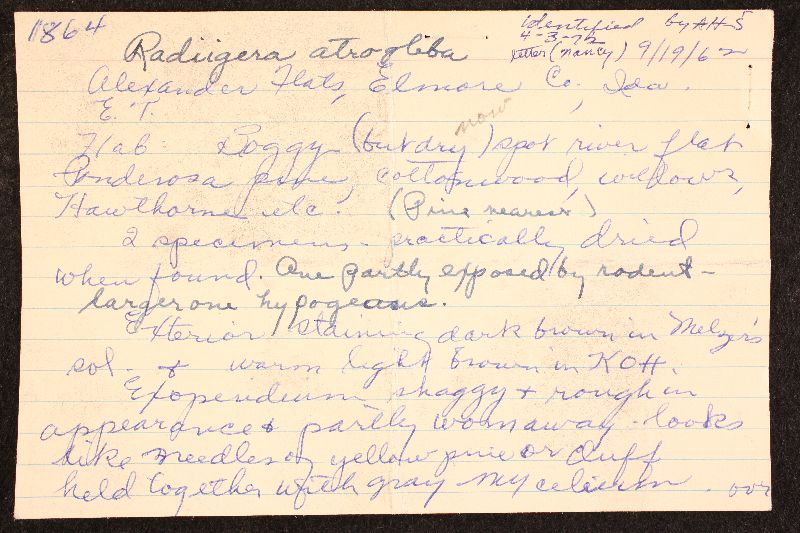 1864
Identified by AHS
4-3-72
letter (Nancy) 9/19/62
Radiigera atrogleba
Alexander Flats, Elmore Co., Ida.
E. T.
now
Hab: Boggy (but dry) spot river flat
Ponderosa pine, cottonwood, willows,
Hawthorne etc. (Pine nearest)
2 specimens - practically dried
when found. One partly exposed by rodent -
larger one hypogeous.
Exterior staining dark brown in Melzer's
sol. & warm light brown in KOH.
Exoperidium shaggy & rough in
appearance & partly worn away - looks
like needles of yellow pine or duff
held together with gray mycelium. over